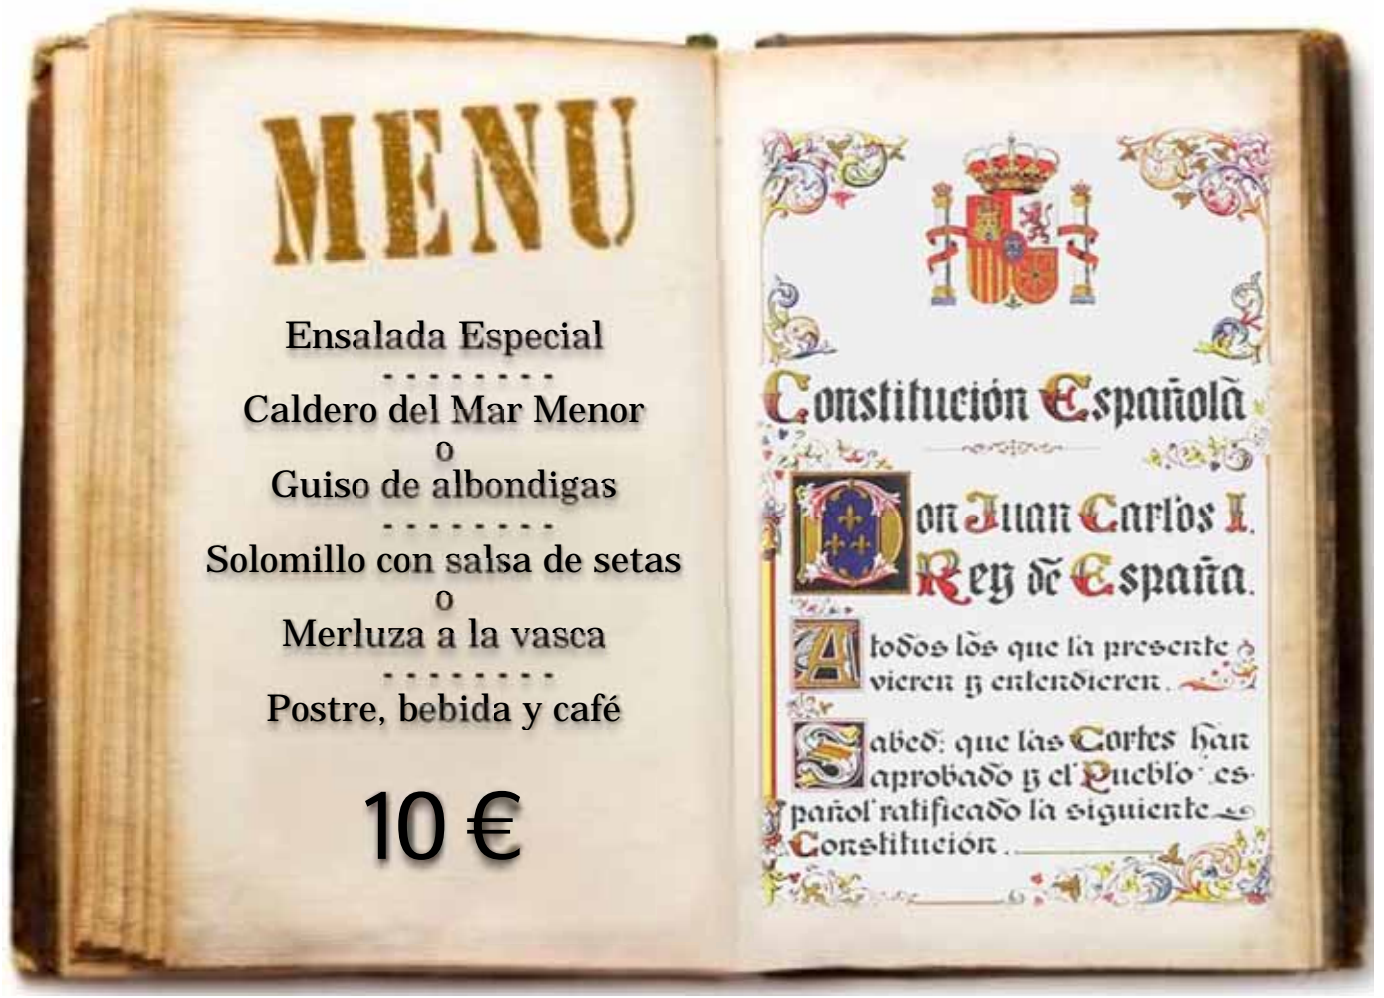 MENU
Ensalada Especial
- - - - - - - -
Caldero del Mar Menor
o
Guiso de albondigas
- - - - - - - -
Solomillo con salsa de setas
o
Merluza a la vasca
- - - - - - - -
Postre, bebida y café
10 €
Constitución Española
Don Juan Carlos I.
Rey de España.
A todos los que la presente
vieren y entendieren.
Sabed: que las Cortes han
aprobado y el Pueblo es-
pañol ratificado la siguiente
Constitución.